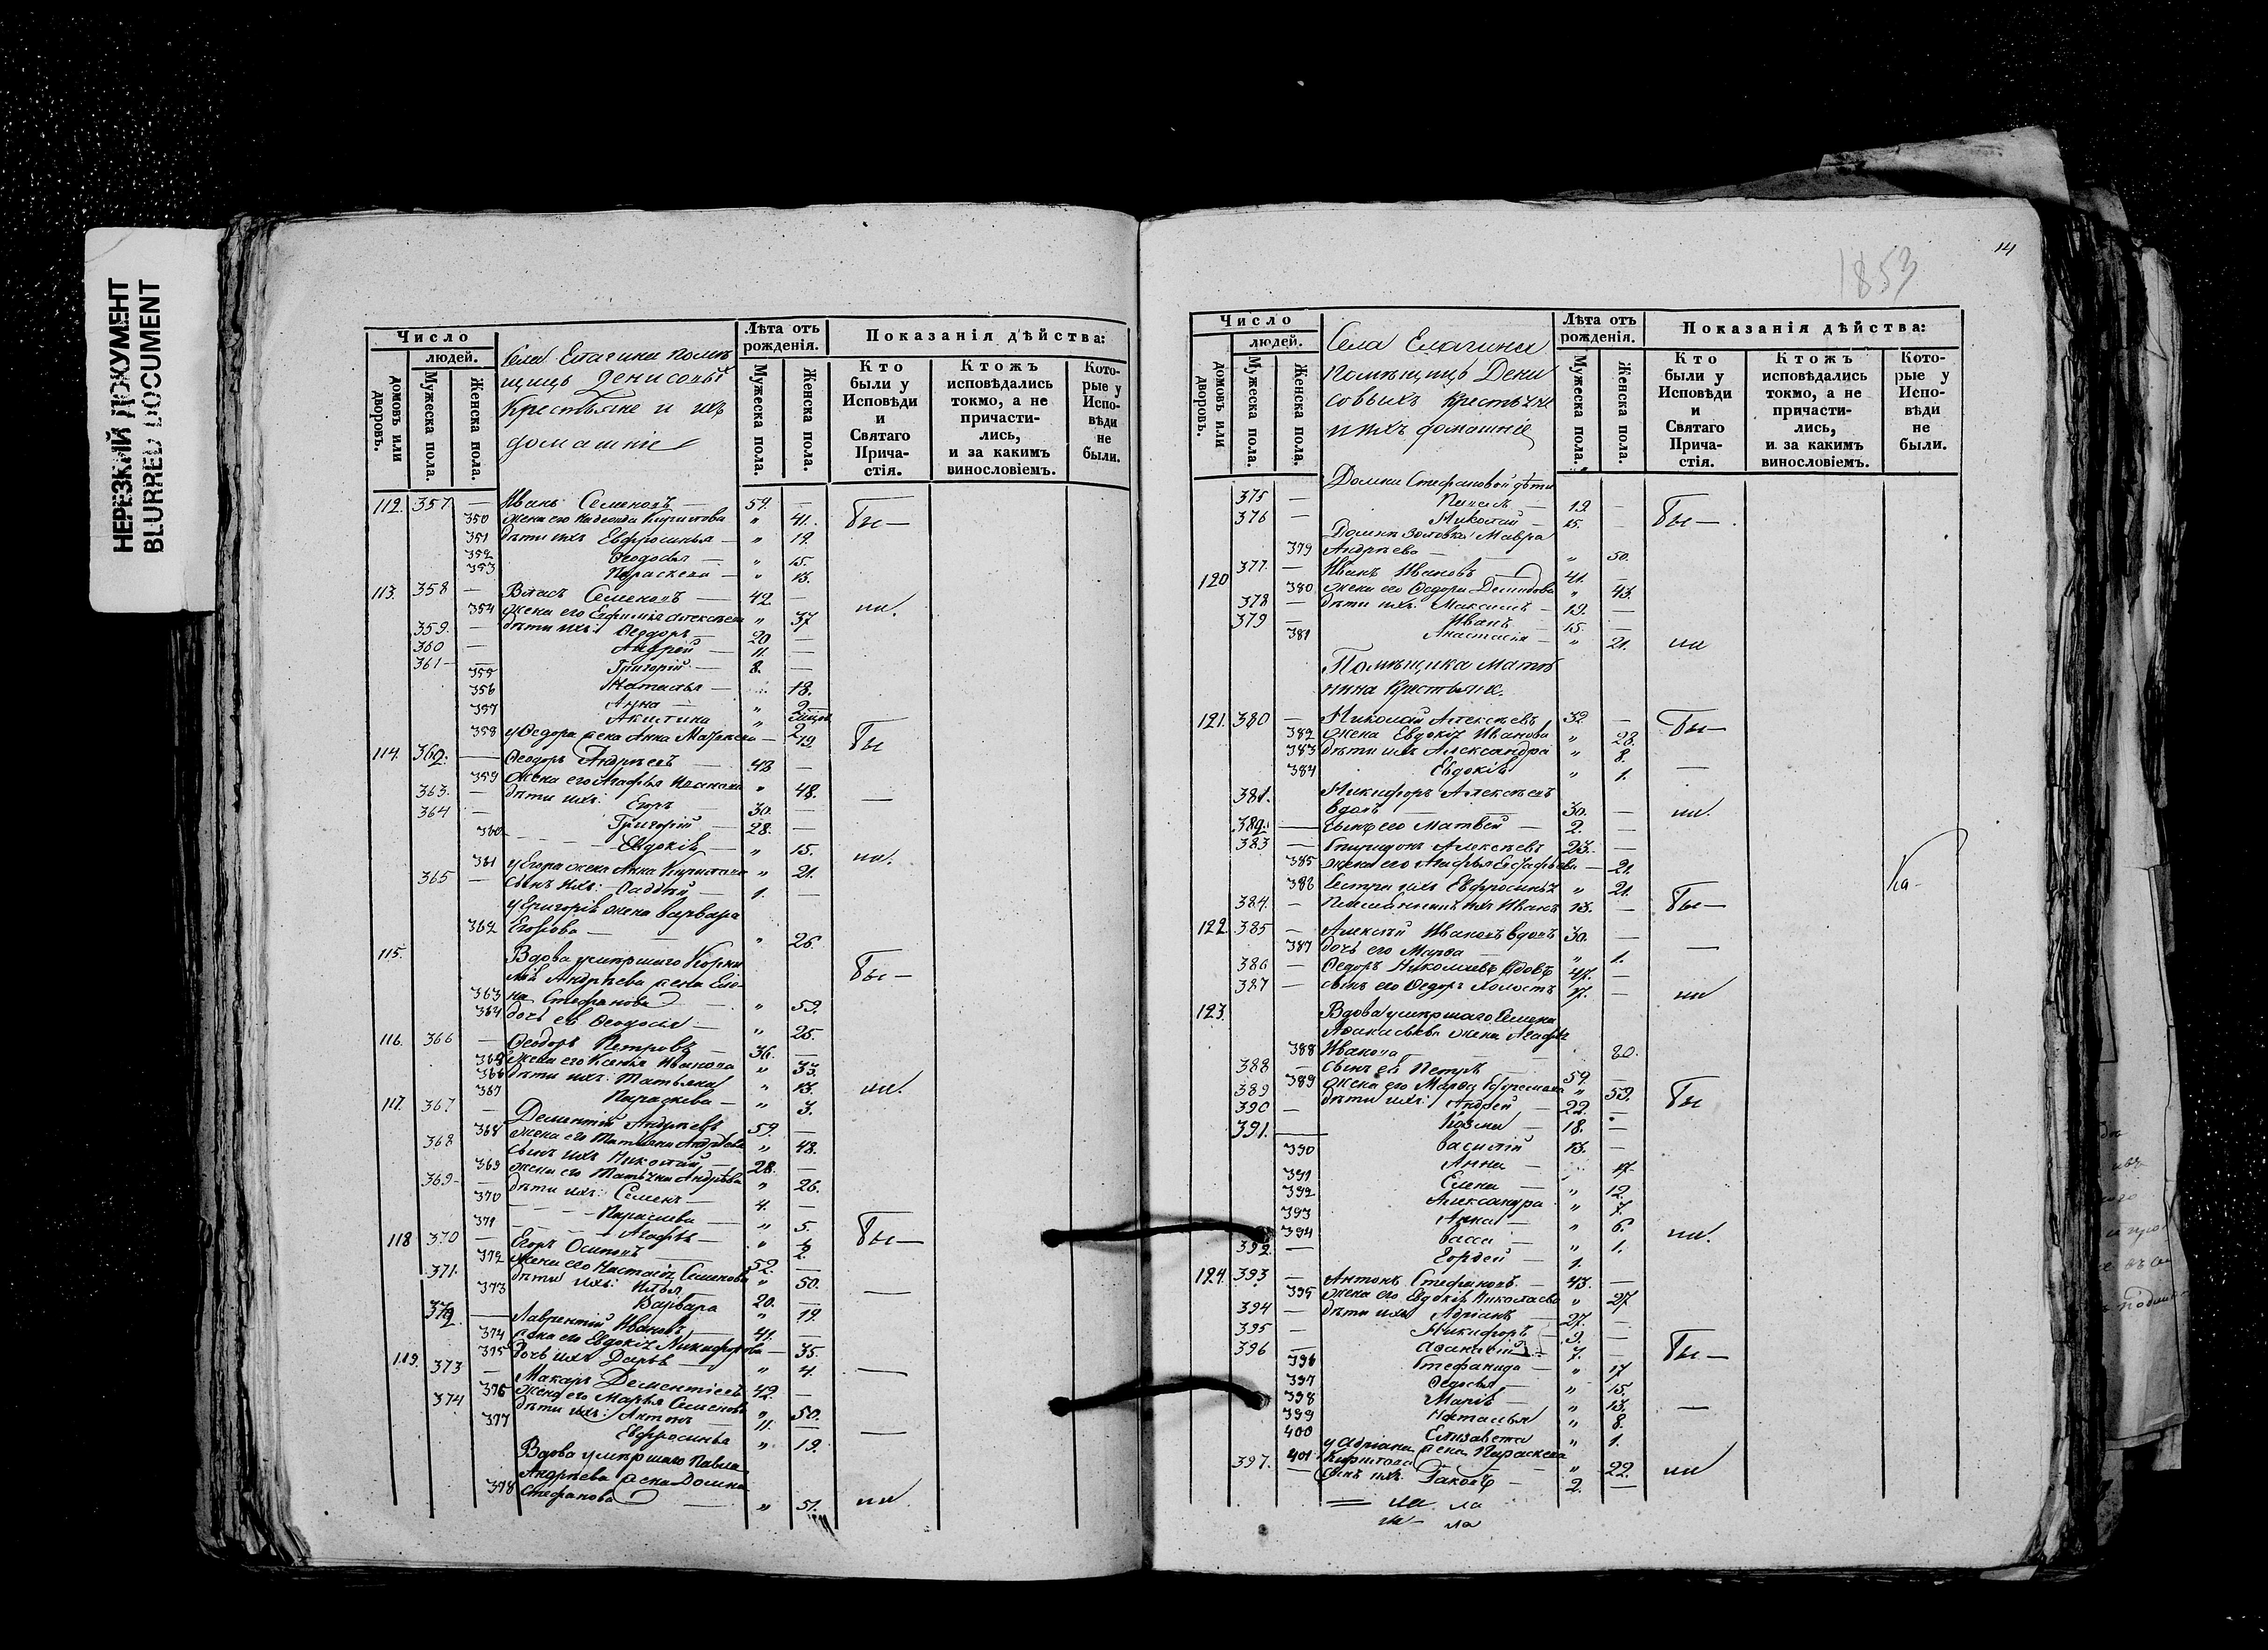 НЕРЕЗКИЙ ДОКУМЕНТ
BLURRED DOCUMENT
Число
людей.
домовъ или дворовъ.
Мужеска пола.
Женска пола.
Села Елагина помѣ
щицъ Денисовы
Крестьяне и ихъ
домашніе
Лѣта отъ рожденія.
Мужеска пола.
Женска пола.
Показанія дѣйства:
Кто были у Исповѣди и Святаго Прича-стія.
Ктожъ исповѣдались токмо, а не причасти-лись, и за какимъ винословіемъ.
Кото-рые у Испо-вѣди не были.
112. 357. — Иванъ Семеновъ — 59. — Бы—
350 жена его Надежда Кирилова " 41.
351 дѣти ихъ Евфросинья — " 19.
352 Ѳеодосья — " 15.
353 Параскева — " 13.
113. 358 — Власъ Семеновъ — 42. — ли.
354 жена его Евфимія Алексѣева " 37
359. — дѣти ихъ: Ѳеодоръ — 20 —
360 — Андрей — 11. —
361 — Григорій — 8. —
355 Наталья — " 18.
356 Анна — " 2
357 Акилина "
358 у Ѳедора жена Анна Матвѣева — 19. Бы
114. 362. — Ѳеодоръ Андреевъ 48 —
359 Жена его Агафья Иванова " 48.
363. — дѣти ихъ: Егоръ — 30. —
364 — Григорій — 28. —
360 Евдокія — " 15.
361 у Егора жена Анна Кирилова " 21. ли.
365 — сынъ ихъ: Фаддей — 1. —
у Григорія жена Варвара
362 Егорова — " 26.
115. Вдова умершаго Корни
лія Андреева жена Еле- Бы —
363 на Стефанова — " 59.
364 дочь её Ѳеодосія — " 25.
116. 366 — Ѳеодоръ Петровъ — 36. —
365 жена его Ксенія Иванова " 33.
366 дѣти ихъ: Татьяна " 13. ли.
367 Параскева — " 3.
117. 367 — Дементій Андреевъ 59. —
368 жена его Татьяна Андреева " 48.
368 сынъ ихъ Николай — 28. —
369 жена его Татьяна Андреева " 26.
369 — дѣти ихъ: Семенъ — 4. —
370 Параскева — " 5.
371 Агафья — " 2. Бы —
118 370 — Егоръ Осиповъ — 52. —
372 жена его Настасья Семенова " 50.
371. дѣти ихъ: Илья 20. —
373 Варвара " 19.
372 — Лаврентій Ивановъ — 41. —
374 жена его Евдокія Никифорова — 35.
375 дочь ихъ Дарья — " 4.
119. 373 — Макаръ Дементіевъ 42. —
376 жена его Марья Семенова " 50.
374 дѣти ихъ: Антонъ — 11. —
377 Евфросинья " 19.
Вдова умершаго Павла
Андреева жена Домна
378 Стефанова — " 51. ли
14
1853
Число
людей.
домовъ или дворовъ.
Мужеска пола.
Женска пола.
Села Елагина
Помѣщицъ Дени
совыхъ Крестьяне
и ихъ домашніе
Лѣта отъ рожденія.
Мужеска пола.
Женска пола.
Показанія дѣйства:
Кто были у Исповѣди и Святаго Прича-стія.
Ктожъ исповѣдались токмо, а не причасти-лись, и за какимъ винословіемъ.
Кото-рые у Испо-вѣди не были.
Домны Стефановой дѣти
375 — 19. — Бы —
376 — Николай — 15. —
Домны золовка Мавра
379 Андреева — " 50.
120 377. — Иванъ Ивановъ — 41. —
380 жена его Ѳедора Демидова " 43.
378 — дѣти ихъ: Максимъ — 19. —
379 — Иванъ — 15. —
381 Анастасія — " 21. ли
Помѣщика Матю
нина Крестьяне.
121. 380 — Николай Алексѣевъ 32 — Бы—
382 Жена Евдокія Иванова " 28.
383 дѣти ихъ Александра " 8.
384 Евдокія " 1. —
381. Никифоръ Алексѣевъ
вдовъ 30. — ли.
382. — сынъ его Матвей — 2. —
383 — Спиридонъ Алексѣевъ 23. —
385 жена его Агафья — 21.
386 Сестра ихъ Евфросинья " 21. Ка-
384. — Племянникъ ихъ Иванъ 13. — Бы —
122. 385 — Алексѣй Ивановъ вдовъ 30. —
387 дочь его Марѳа — " 1.
386 — Ѳедоръ Николаевъ вдовъ 47. —
387 — сынъ его Ѳедоръ холостъ 17. — ли
123. Вдова умершаго Семена
Аѳанасьева жена Агафья
388 Иванова — 80.
388 — сынъ её Петръ — 59. —
389 жена его Марѳа Ефремова " 53. Бы
389 дѣти ихъ: Андрей — 22. —
390 — Козма — 18. —
391. — Василій 13. —
390 Анна — 17.
391 Елена — " 12.
392 Александра " 7.
393 Анна — " 6.
394 Васса — " 1. ли.
392. — Гордей — 1.
124. 393 — Антонъ Стефановъ — 43. —
395 жена его Евдокія Николаева " 27
394 — дѣти ихъ Адріанъ — 27. —
395 — Никифоръ — 9. —
396 — Аѳанасій 7. — Бы —
396 Стефанида — " 17
397 Ѳедосья — " 15.
398 Марія — " 13.
399 Наталья " 8.
400 Елизавета " 1.
у Адріана жена Параскева
401 Кирилова " 22. ли
397. — сынъ ихъ Яковъ — 2. —